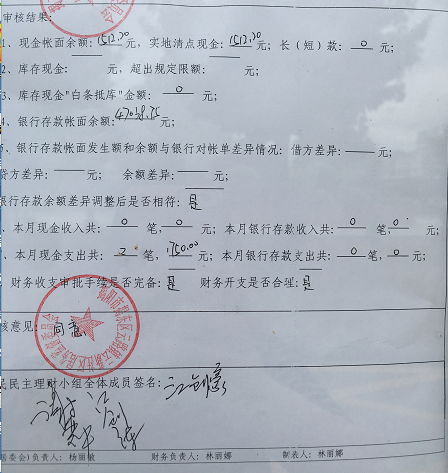 审核结果:
1、现金帐面余额:1512.20元,实地清点现金:1512.20元;长(短)款:0元;
2、库存现金: 元,超出规定限额: 元;
3、库存现金"白条抵库"金额:0元;
4、银行存款帐面余额:元;
、银行存款帐面发生额和余额与银行对帐单差异情况:借方差异: 元;
贷方差异: 元; 余额差异: 元;
银行存款余额差异调整后是否相符:是
、本月现金收入共:0笔,0元;本月银行存款收入共:0笔,0元;
、本月现金支出共:2笔,1750.00元;本月银行存款支出共:0笔,0元;
财务收支审批手续是否完备:是 财务开支是否合理:是
核意见:同意
民主理财小组全体成员签名:
居委会)负责人:杨丽敏 财务负责人:林丽娜 制表人:林丽娜